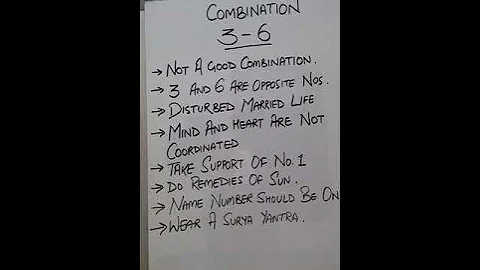 COMBINATION
3-6
→ NOT A GOOD COMBINATION.
→ 3 AND 6 ARE OPPOSITE NOS.
→ DISTURBED MARRIED LIFE
→ MIND AND HEART ARE NOT
COORDINATED
→ TAKE SUPPORT OF NO. 1
→ DO REMEDIES OF SUN.
→ NAME NUMBER SHOULD BE ON
→ WEAR A SURYA YANTRA.